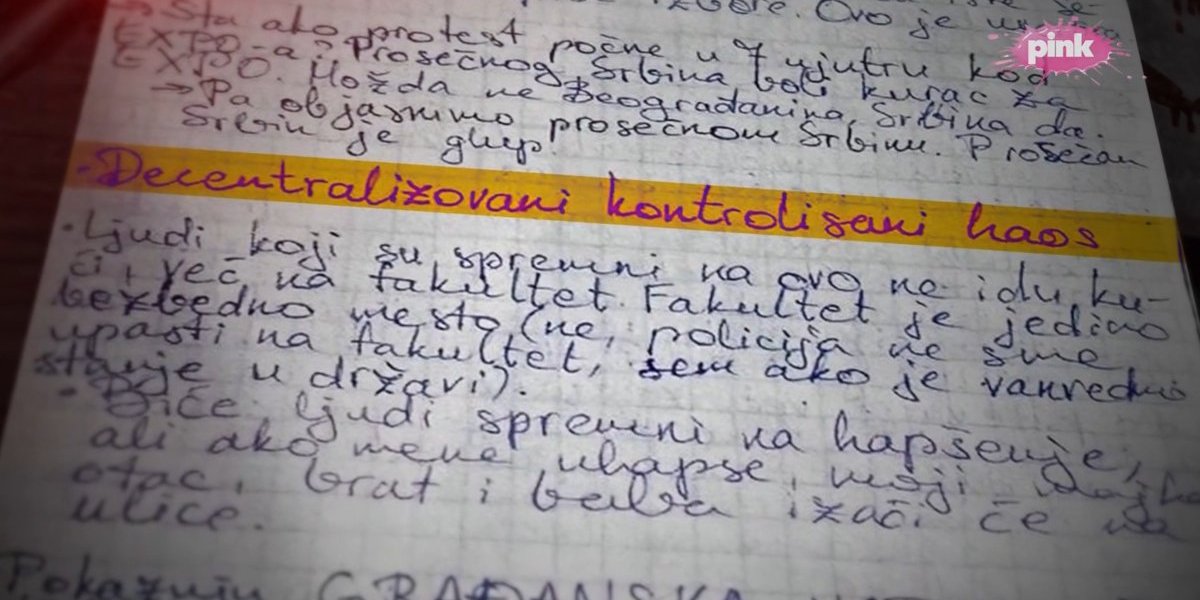 izbore. Ovo je
→ Šta ako protest počne u 7 ujutru kod
EXPO-a? Prosečnog Srbina boli kurac za
EXPO. Možda ne Beograđanina, Srbina da.
→ Pa objasnimo prosečnom Srbinu. Prosečan
Srbin je glup.
• Decentralizovani kontrolisani haos
• Ljudi koji su spremni na ovo ne idu ku-
ći, već na fakultet. Fakultet je jedino
bezbedno mesto (ne, policija ne sme
upasti na fakultet, sem ako je vanredno
stanje u državi).
• Biće ljudi spremni na hapšenje,
ali ako mene uhapse, moji
otac, brat i baba izaći će na
ulice.
Pokazuju GRAĐANSKA
pink